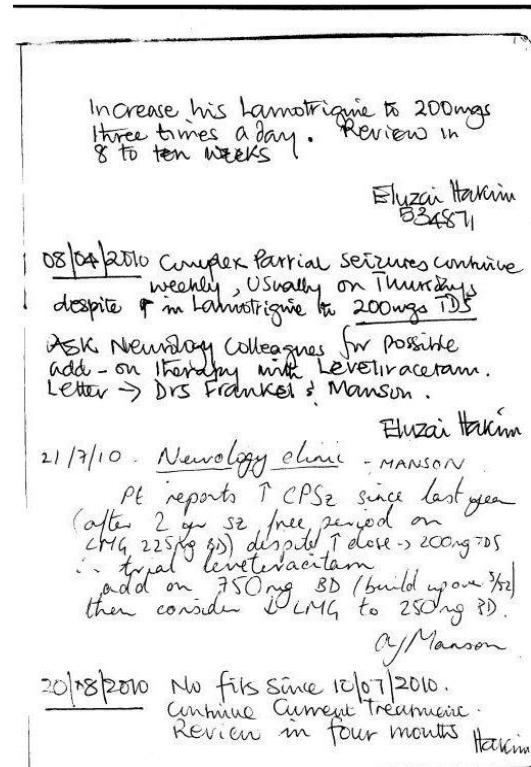 Increase his Lamotrigine to 200mgs
three times a day. Review in
8 to ten weeks
Eluzai Hakim
534871
08/04/2010 Complex Partial seizures continue
weekly, usually on Thursdays
despite ↑ in Lamotrigine to 200mgs TDS
Ask Neurology Colleagues for possible
add-on therapy with Levetiracetam.
Letter → Drs Frankel & Manson.
Eluzai Hakim
21/7/10. Neurology clinic - MANSON
Pt reports ↑ CPSz since last year
(after 2 yr sz free period on
LMG 225mg BD) despite ↑ dose → 200mg TDS
∴ trial leveteracitam
add on 750mg BD (build up over 3/52)
then consider ↓ LMG to 250mg BD.
Manson
20/08/2010 No fits since 10/07/2010.
Continue Current Treatment.
Review in four months Hakim